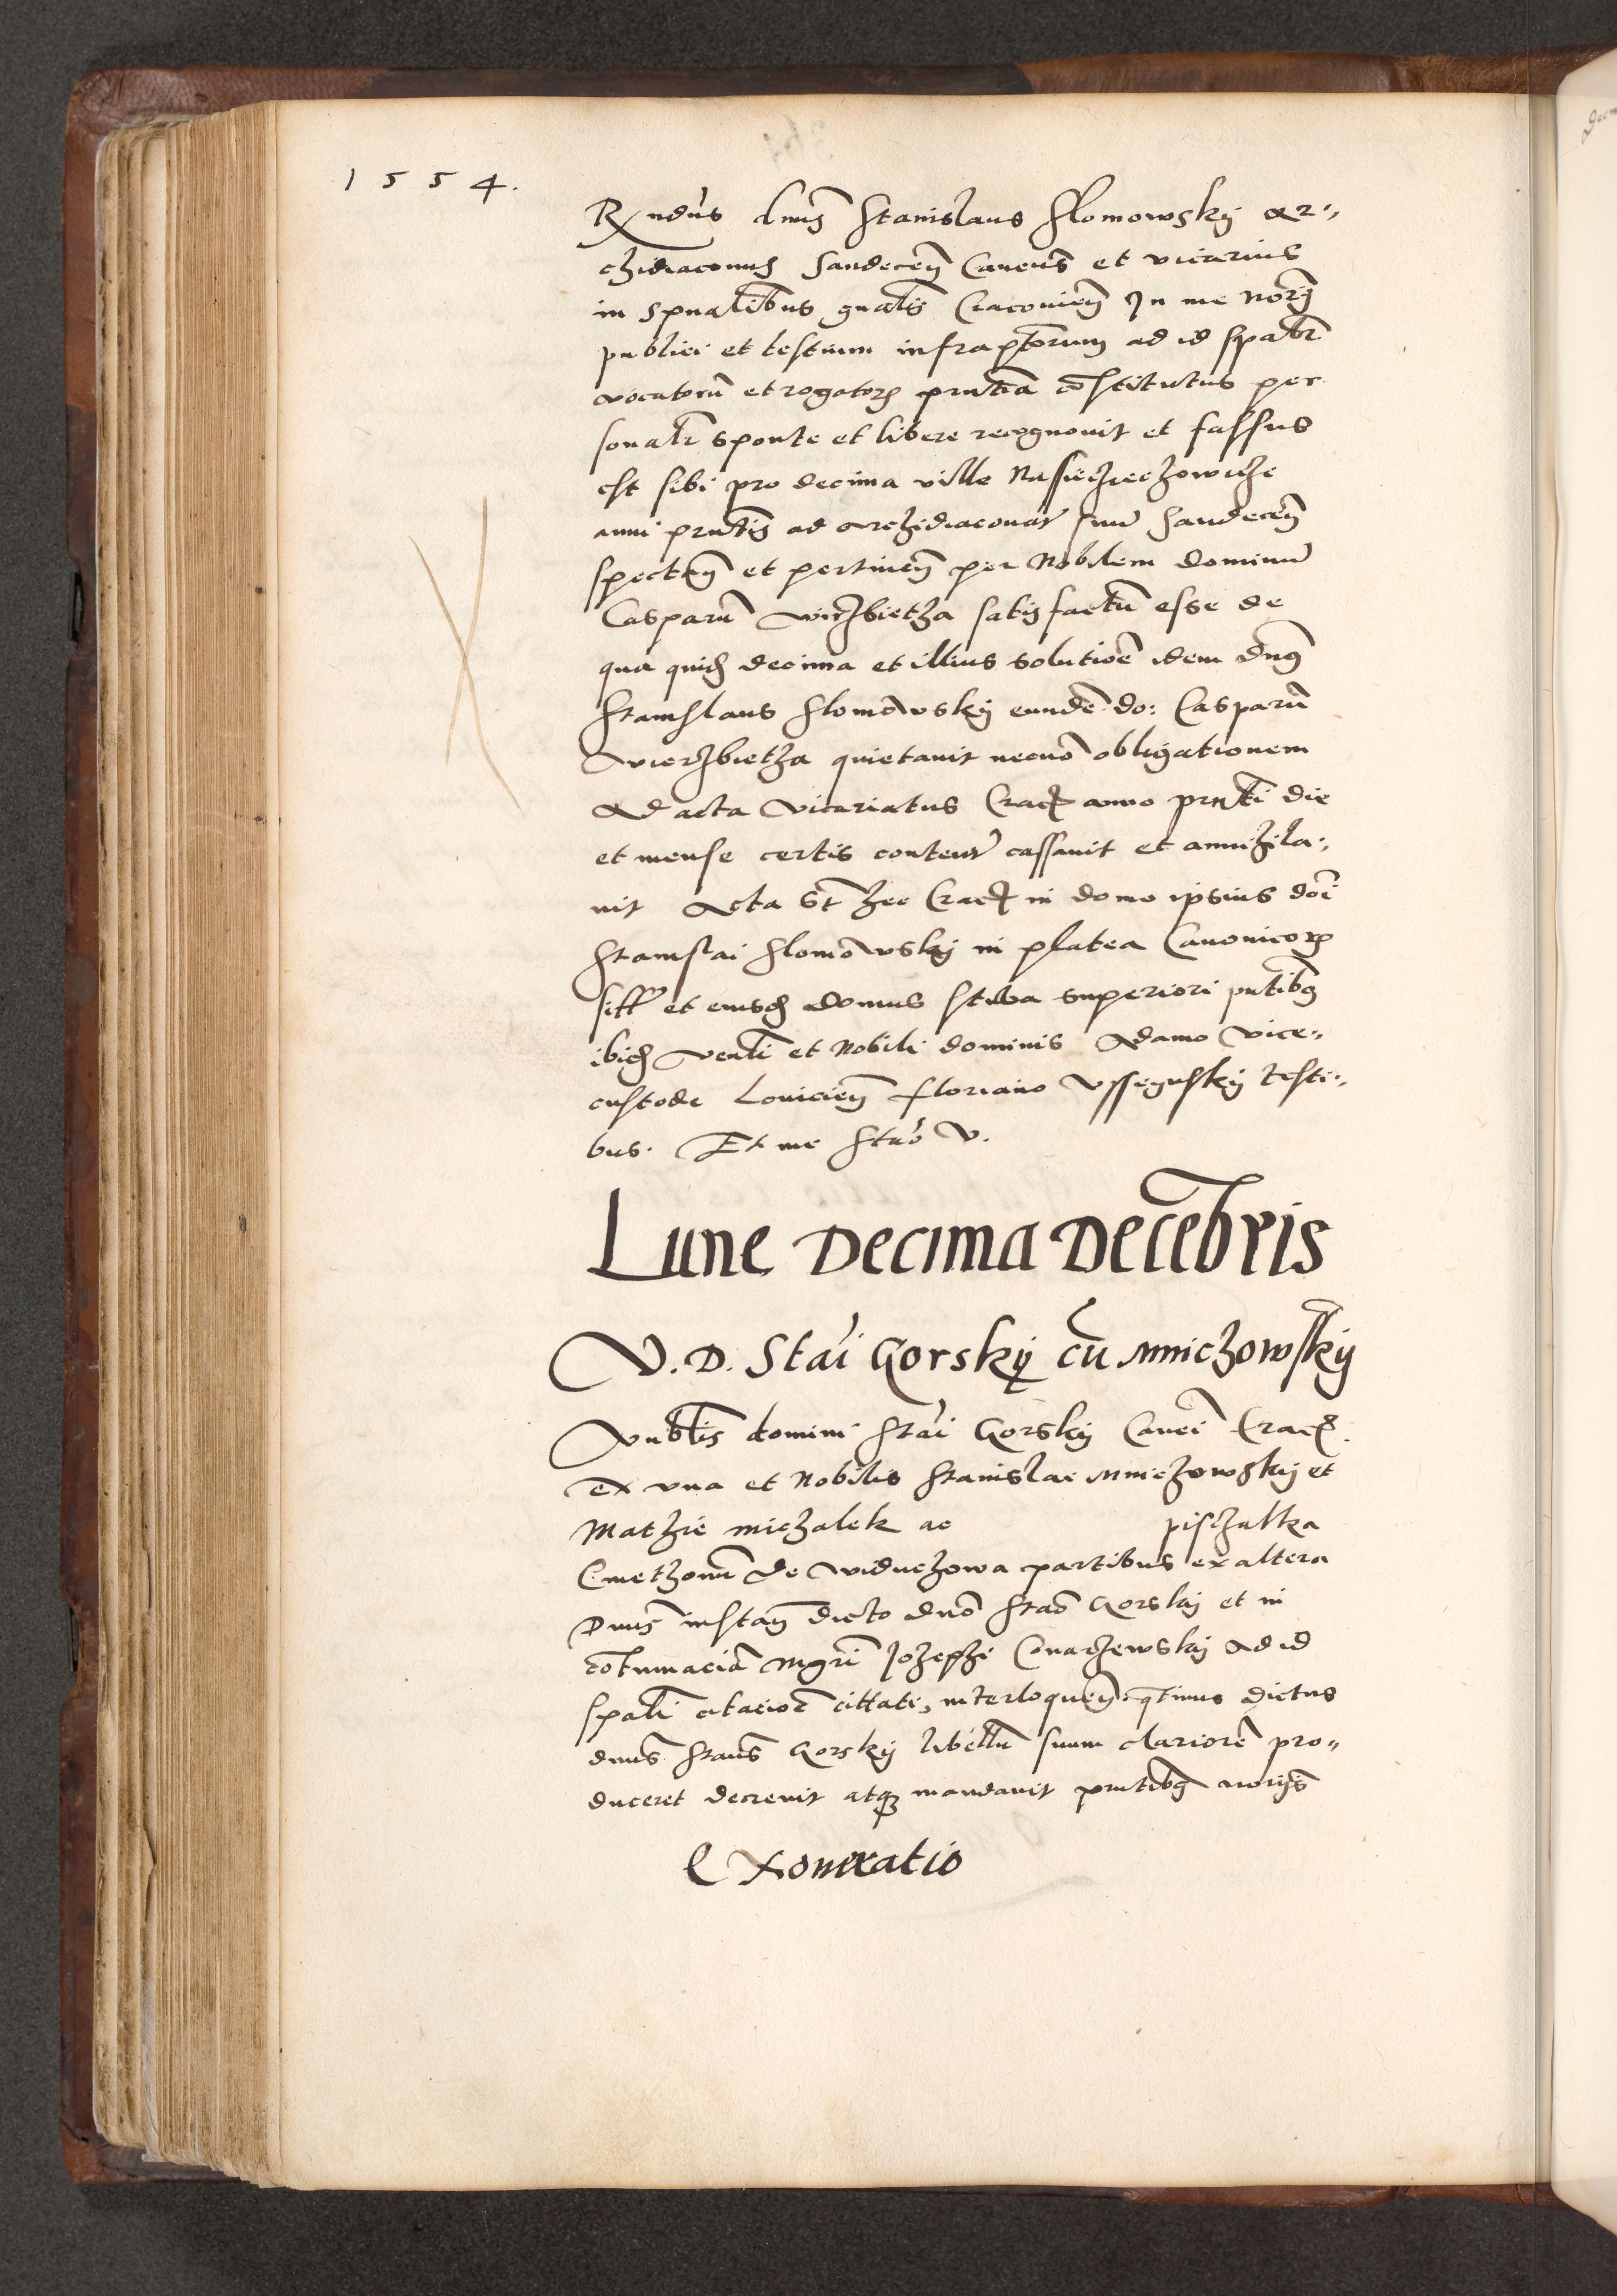 1554.
Rndus dnus Stanislaus Slomowsky Ar„
chidiaconus Sandecen Cancus et vicarius
in spualibus gnalis Cracovien In me Norij
publici et testium infrascptorum ad id spalr
vocatorum et rogatorum pntia constitutus per
sonalr sponte et libere recognovit et fassus
est sibi pro decima ville Nassiechiechowicze
anni pntis ad Archidiaconat suum Sandecen
spectan et pertinen per Nobilem dominum
Casparum Wierzbietha satisfactum esse de
qua quidem decima et illius solutione idem dnus
Stanislaus Slomowsky eundem do: Casparum
Wierzbietha quietavit necno obligationem
Ad acta Vicariatus Crac anno pnti die
et mense certis contentam cassavit et annihila„
vit Acta st hec Crac in domo ipsius doi
Stanislai Slomowsky in platea Canonicorum
sitt et eiusdem domus stuba superiori pntibus
ibidem venli et Nobili dominis Adamo Vice„
custode Lovicien Floriano Usseynsky testi„
bus. Et me Stao V.
Lune Decima Decebris
V. D. Stai Gorsky cu Mnichowsky
Vnblis domini Stai Gorsky Canci Crac.
ex una et Nobilis Stanislai Mnichowsky et
Mathie Michalek ac pischalka
Cmethonum de Widuchowa partibus ex altera
Dnus instan dicto dno Stao Gorsky et in
cotumacia Mgri Josephi Ad id
spali citatioe cittati, interloquen. qtinus dictus
dnus Staus Gorsky libellu suum clariore pro„
duceret decrevit atque mandavit pntibus norijs
Exoneratio